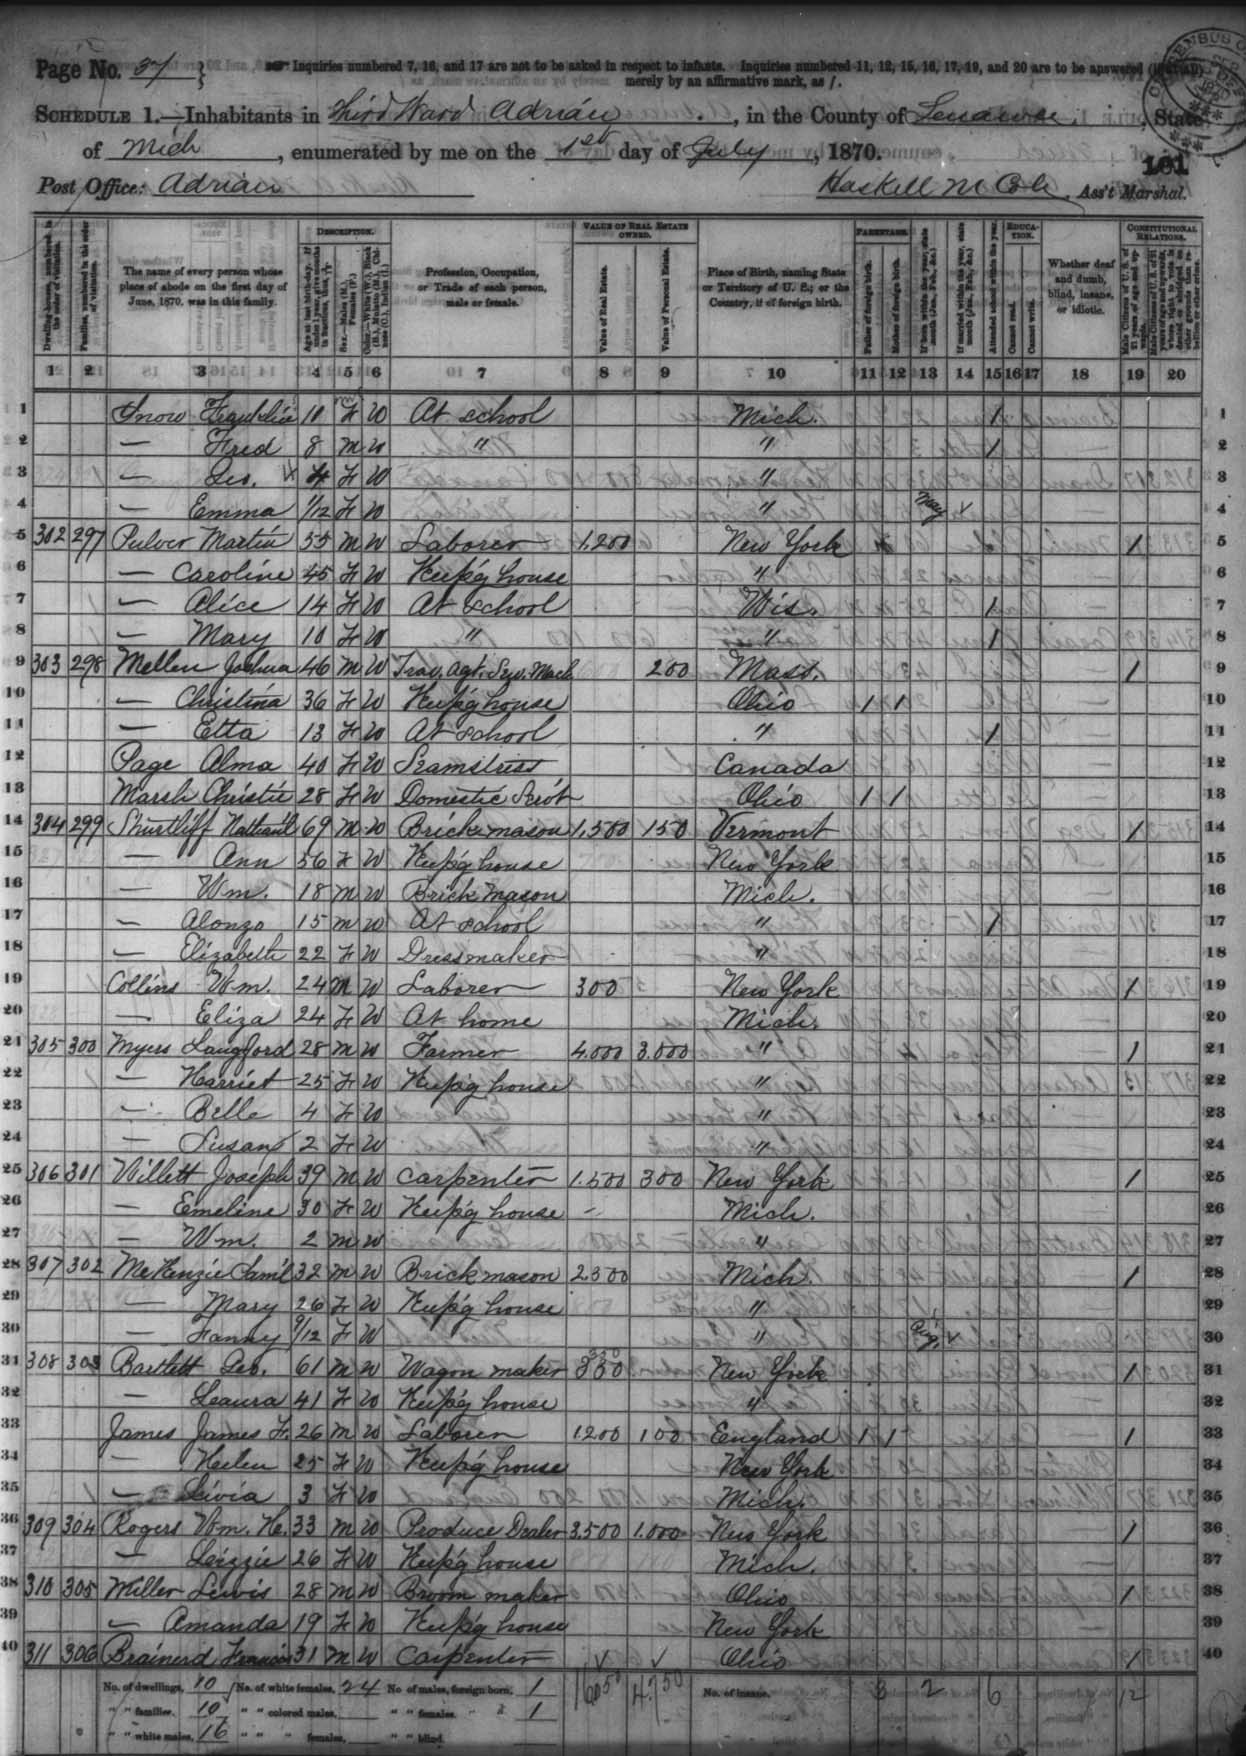 Page No. 37
Inquiries numbered 7, 16, and 17 are not to be asked in respect to infants. Inquiries numbered 11, 12, 15, 16, 17, 19, and 20 are to be answered (if at all)
merely by an affirmative mark, as /.
SCHEDULE 1.—Inhabitants in Third Ward Adrian, in the County of Lenawee, State
of Mich, enumerated by me on the 1st day of July, 1870.
161
Post Office: Adrian Haskell M Cole, Ass't Marshal.
Dwelling-houses, numbered in the order of visitation.
Families, numbered in the order of visitation.
The name of every person whose place of abode on the first day of June, 1870, was in this family.
DESCRIPTION.
Age at last birth-day. If under 1 year, give months in fractions, thus, 3/12.
Sex.—Males (M.), Females (F.)
Color.—White (W.), Black (B.), Mulatto (M.), Chinese (C.), Indian (I.)
Profession, Occupation, or Trade of each person, male or female.
VALUE OF REAL ESTATE OWNED.
Value of Real Estate.
Value of Personal Estate.
Place of Birth, naming State or Territory of U. S.; or the Country, if of foreign birth.
PARENTAGE.
Father of foreign birth.
Mother of foreign birth.
If born within the year, state month (Jan., Feb., &c.)
If married within the year, state month (Jan., Feb., &c.)
Attended school within the year.
EDUCATION.
Cannot read.
Cannot write.
Whether deaf and dumb, blind, insane, or idiotic.
CONSTITUTIONAL RELATIONS.
Male Citizens of U. S. of 21 years of age and upwards.
1 2 3 4 5 6 7 8 9 10 11 12 13 14 15 16 17 18 19 20
1 Snow Franklin 10 W At school Mich. 1 1
2 — Fred 8 M W " " 1 2
3 — Geo. 4 F W " 3
4 — Emma 1/12 F W " May 4
5 302 297 Pulver Martin 55 M W Laborer 1,200 New York 1 5
6 — Caroline 45 F W Keep'g house " 6
7 — Alice 14 F W At school Wis. 1 7
8 — Mary 10 F W " " 1 8
9 303 298 Mellen Joshua 46 M W Trav. Agt. Sew. Mach 200 Mass. 1 9
10 — Christina 36 F W Keep'g house Ohio 1 1 10
11 — Etta 13 F W At school " 1 11
12 Page Alma 40 F W Seamstress Canada 12
13 Marsh Christie 28 F W Domestic Serv't Ohio 1 1 13
14 304 299 Shurtliff Nathan'l 69 M W Brick mason 1,500 150 Vermont 1 14
15 — Ann 56 F W Keep'g house New York 15
16 — Wm. 18 M W Brick Mason Mich. 16
17 — Alonzo 15 M W At school " 1 17
18 — Elizabeth 22 F W Dressmaker " 18
19 Collins Wm. 24 M W Laborer 300 New York 1 19
20 — Eliza 24 F W At home Mich. 20
21 305 300 Myers Langford 28 M W Farmer 4.000 3.000 " 1 21
22 — Harriet 25 F W Keep'g house " 22
23 — Belle 4 F W " 23
24 — Susan 2 F W " 24
25 306 301 Willett Joseph 39 M W Carpenter 1.500 300 New York 1 25
26 — Emeline 30 F W Keep'g house Mich. 26
27 — Wm. 2 M W " 27
28 307 302 McKenzie Sam'l 32 M W Brick mason 2.500 Mich. 1 28
29 — Mary 26 F W Keep'g house " 29
30 — Fanny 9/12 F W " Aug. 30
31 308 303 Bartlett Geo. 61 M W Wagon maker New York 1 31
32 — Laura 41 F W Keep'g house " 32
33 James James F. 26 M W Laborer 1200 100 England 1 1 1 33
34 — Helen 25 F W Keep'g house New York 34
35 — Livia 3 F W Mich. 35
36 309 304 Rogers Wm. He. 33 M W Produce Dealer 3.500 1.000 New York 1 36
37 — Lizzie 26 F W Keep'g house Mich. 37
38 310 305 Miller Lewis 28 M W Broom maker Ohio 1 38
39 — Amanda 19 F W Keep'g house New York 39
40 311 306 Brainerd Francis 31 M W Carpenter Ohio 1 40
No. of dwellings, 10 No. of white females, 24 No. of males, foreign born, 1 No. of insane, 3 2 6 12
" " families, 10 " " colored males, " " females, " 1
" " white males, 16 " " " females, " " blind,